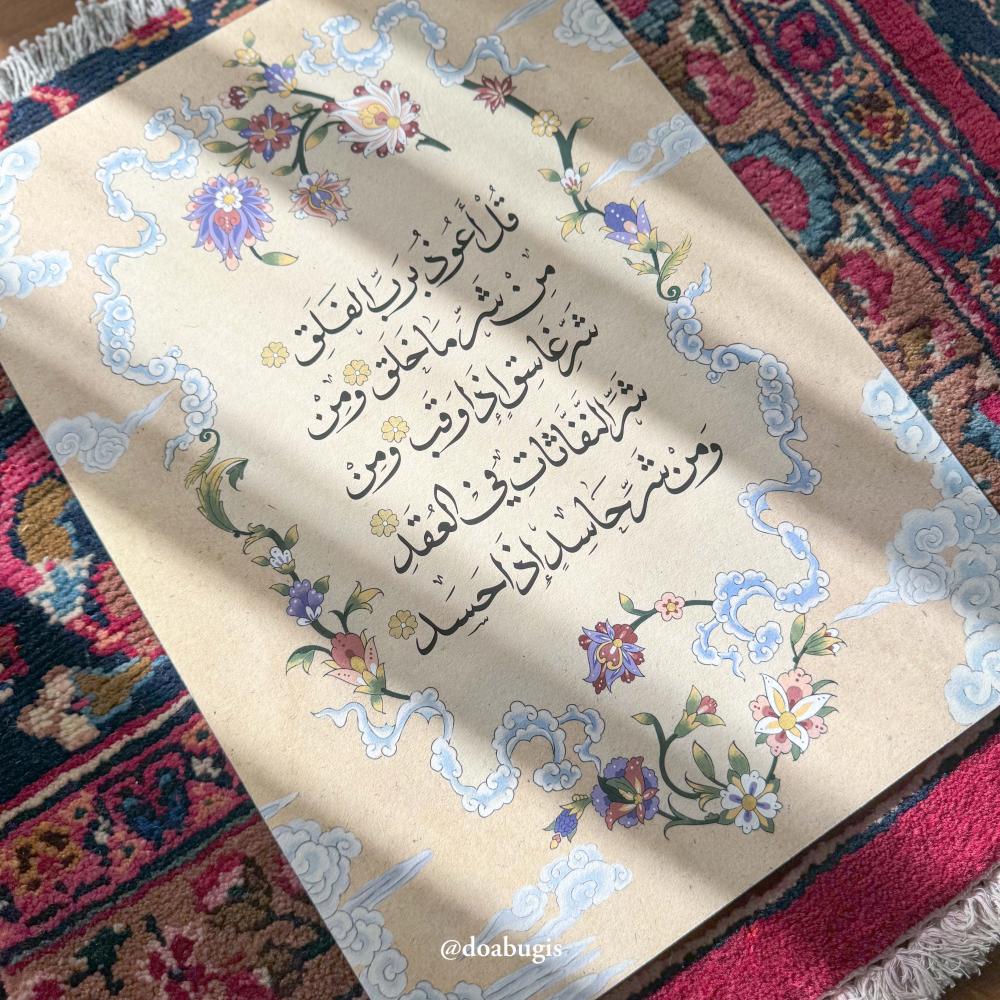 قُلْ أَعُوْذُ بِرَبِّ الفَلَقِ
مِنْ شَرِّ مَا خَلَق وَمِنْ
شَرِّ غَاسِقٍ إِذَا وَقَب وَمِنْ
شَرِّ النَّفَّاثَاتِ فِي العُقَدِ
وَمِنْ شَرِّ حَاسِدٍ إِذَا حَسَد
@doabugis